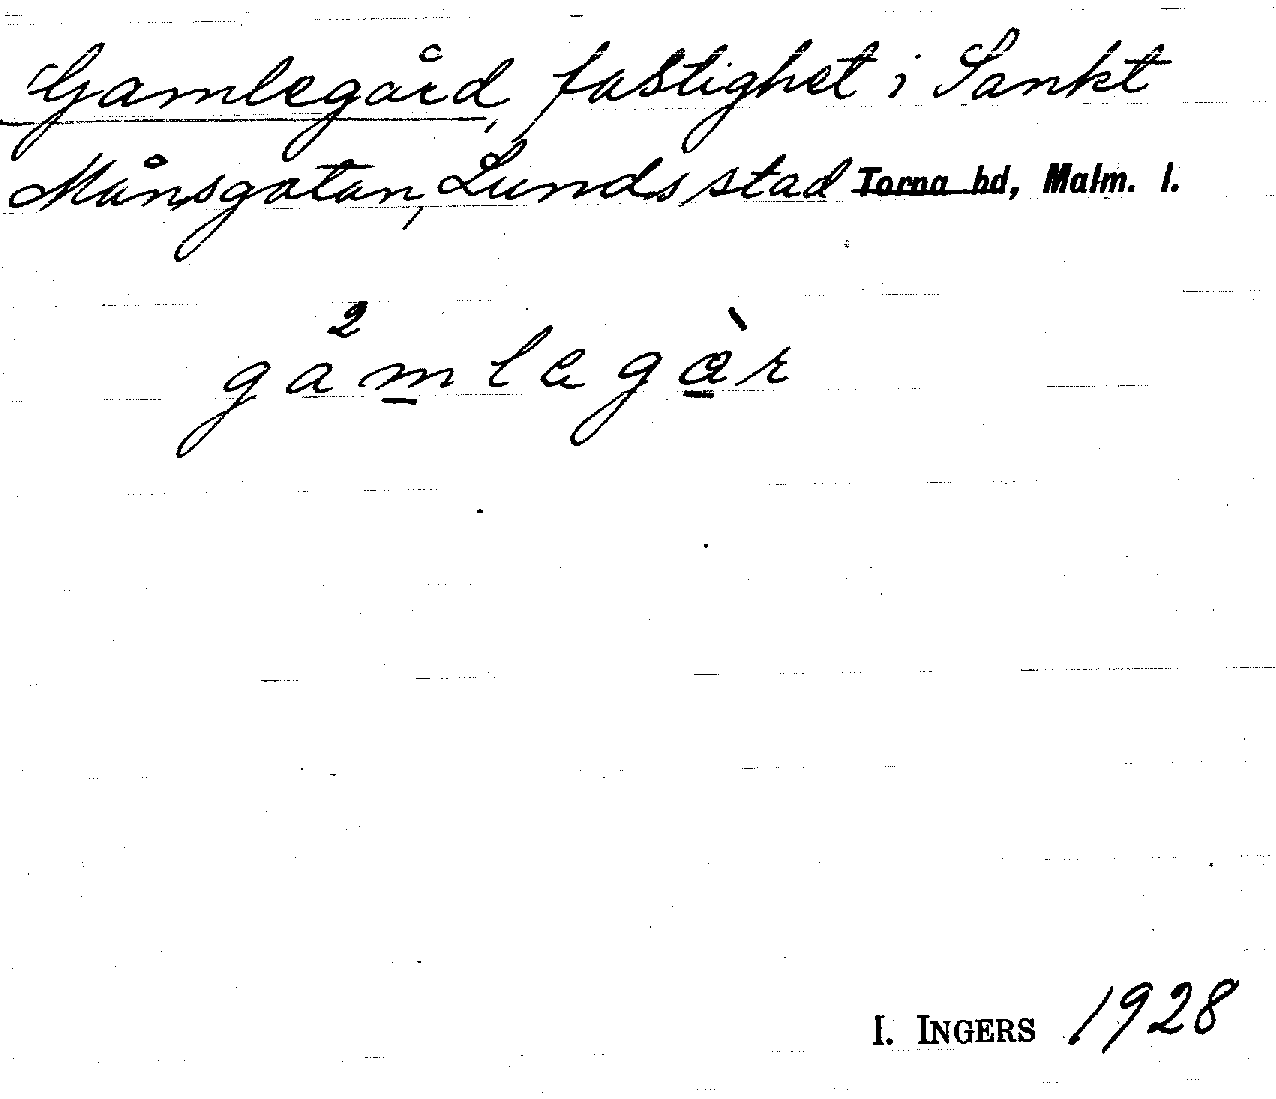 Gamlegård, fastighet i Sankt
Månsgatan, Lunds stad Torna hd, Malm. l.
ga²mlegàr
I. INGERS 1928